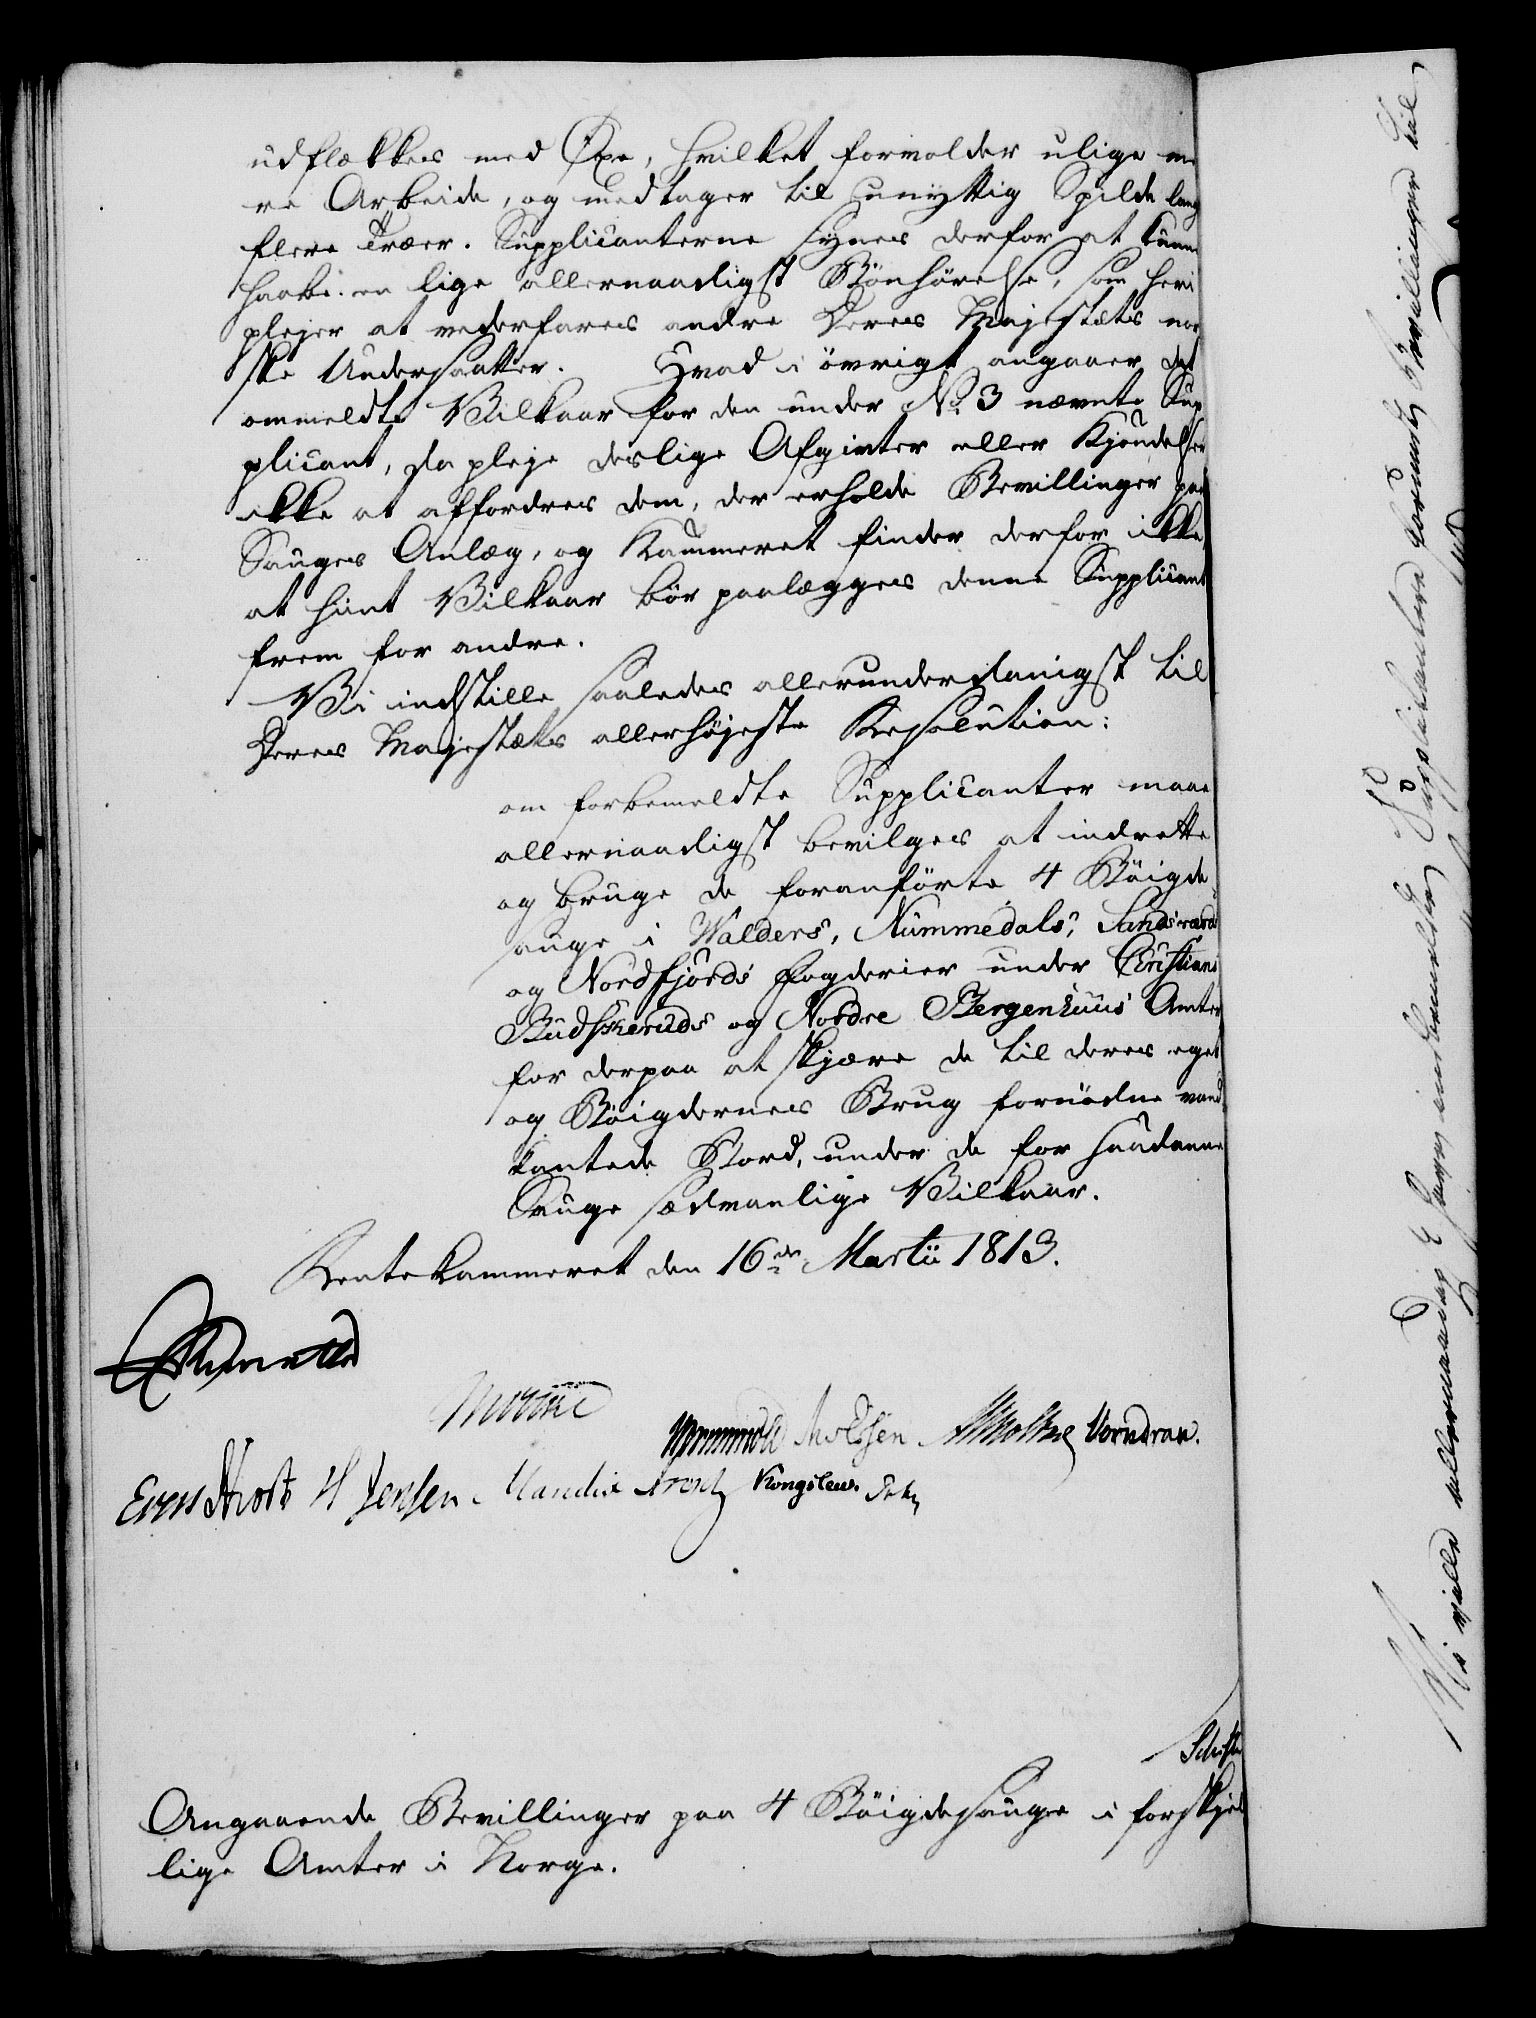 udflækkes med Øxe, hvilket forvolder ulige me
re Arbeide, og medtager til unyttig Spilde lang
flere Træer. Supplicanterne synes derfor at kunne
haabe en lige allernaadigst Bönhörelse, som heri
plejer at vederfares andre Deres Majestæts nor
ske Undersaatter. Hvad i övrigt angaaer det
ommeldte Vilkaar for den under No. 3 nævnte Sup
plicant, da pleje deslige Afgivter eller Kjendelser
ikke at affordres dem, der erholde Bevillinger paa
Sauges Anlæg, og Kammeret finder derfor ikke
at hint Vilkaar bör paalægges denne Supplicant
frem for andre.
Vi indstille saaledes allerunderdanigst til
Deres Majestæts allerhöjeste Resolution:
om forbemeldte Supplicanter maae
allernaadigst bevilges at indrette
og bruge de foranförte 4 Böigde
sauge i Walders, Nummedals, Sandsværds
og Nordfjords Fogderier under Christians
Budskeruds og Nordre Bergenhuus Amter
for derpaa at skjære de til deres eget
og Böigdernes Brug fornödne vand
kantede Bord, under de for saadanne
Sauge sædvanlige Vilkaar.
Rentekammeret den 16de Martii 1813.
Monrad Knudsen Vorndran.
H Jensen Kongslew.
Angaaende Bevillinger paa 4 Böigdesauge i forskjel
lige Amter i Norge.
Vi ville allernaadigst have indbemeldte Supplikantere forundt Bevillinger til